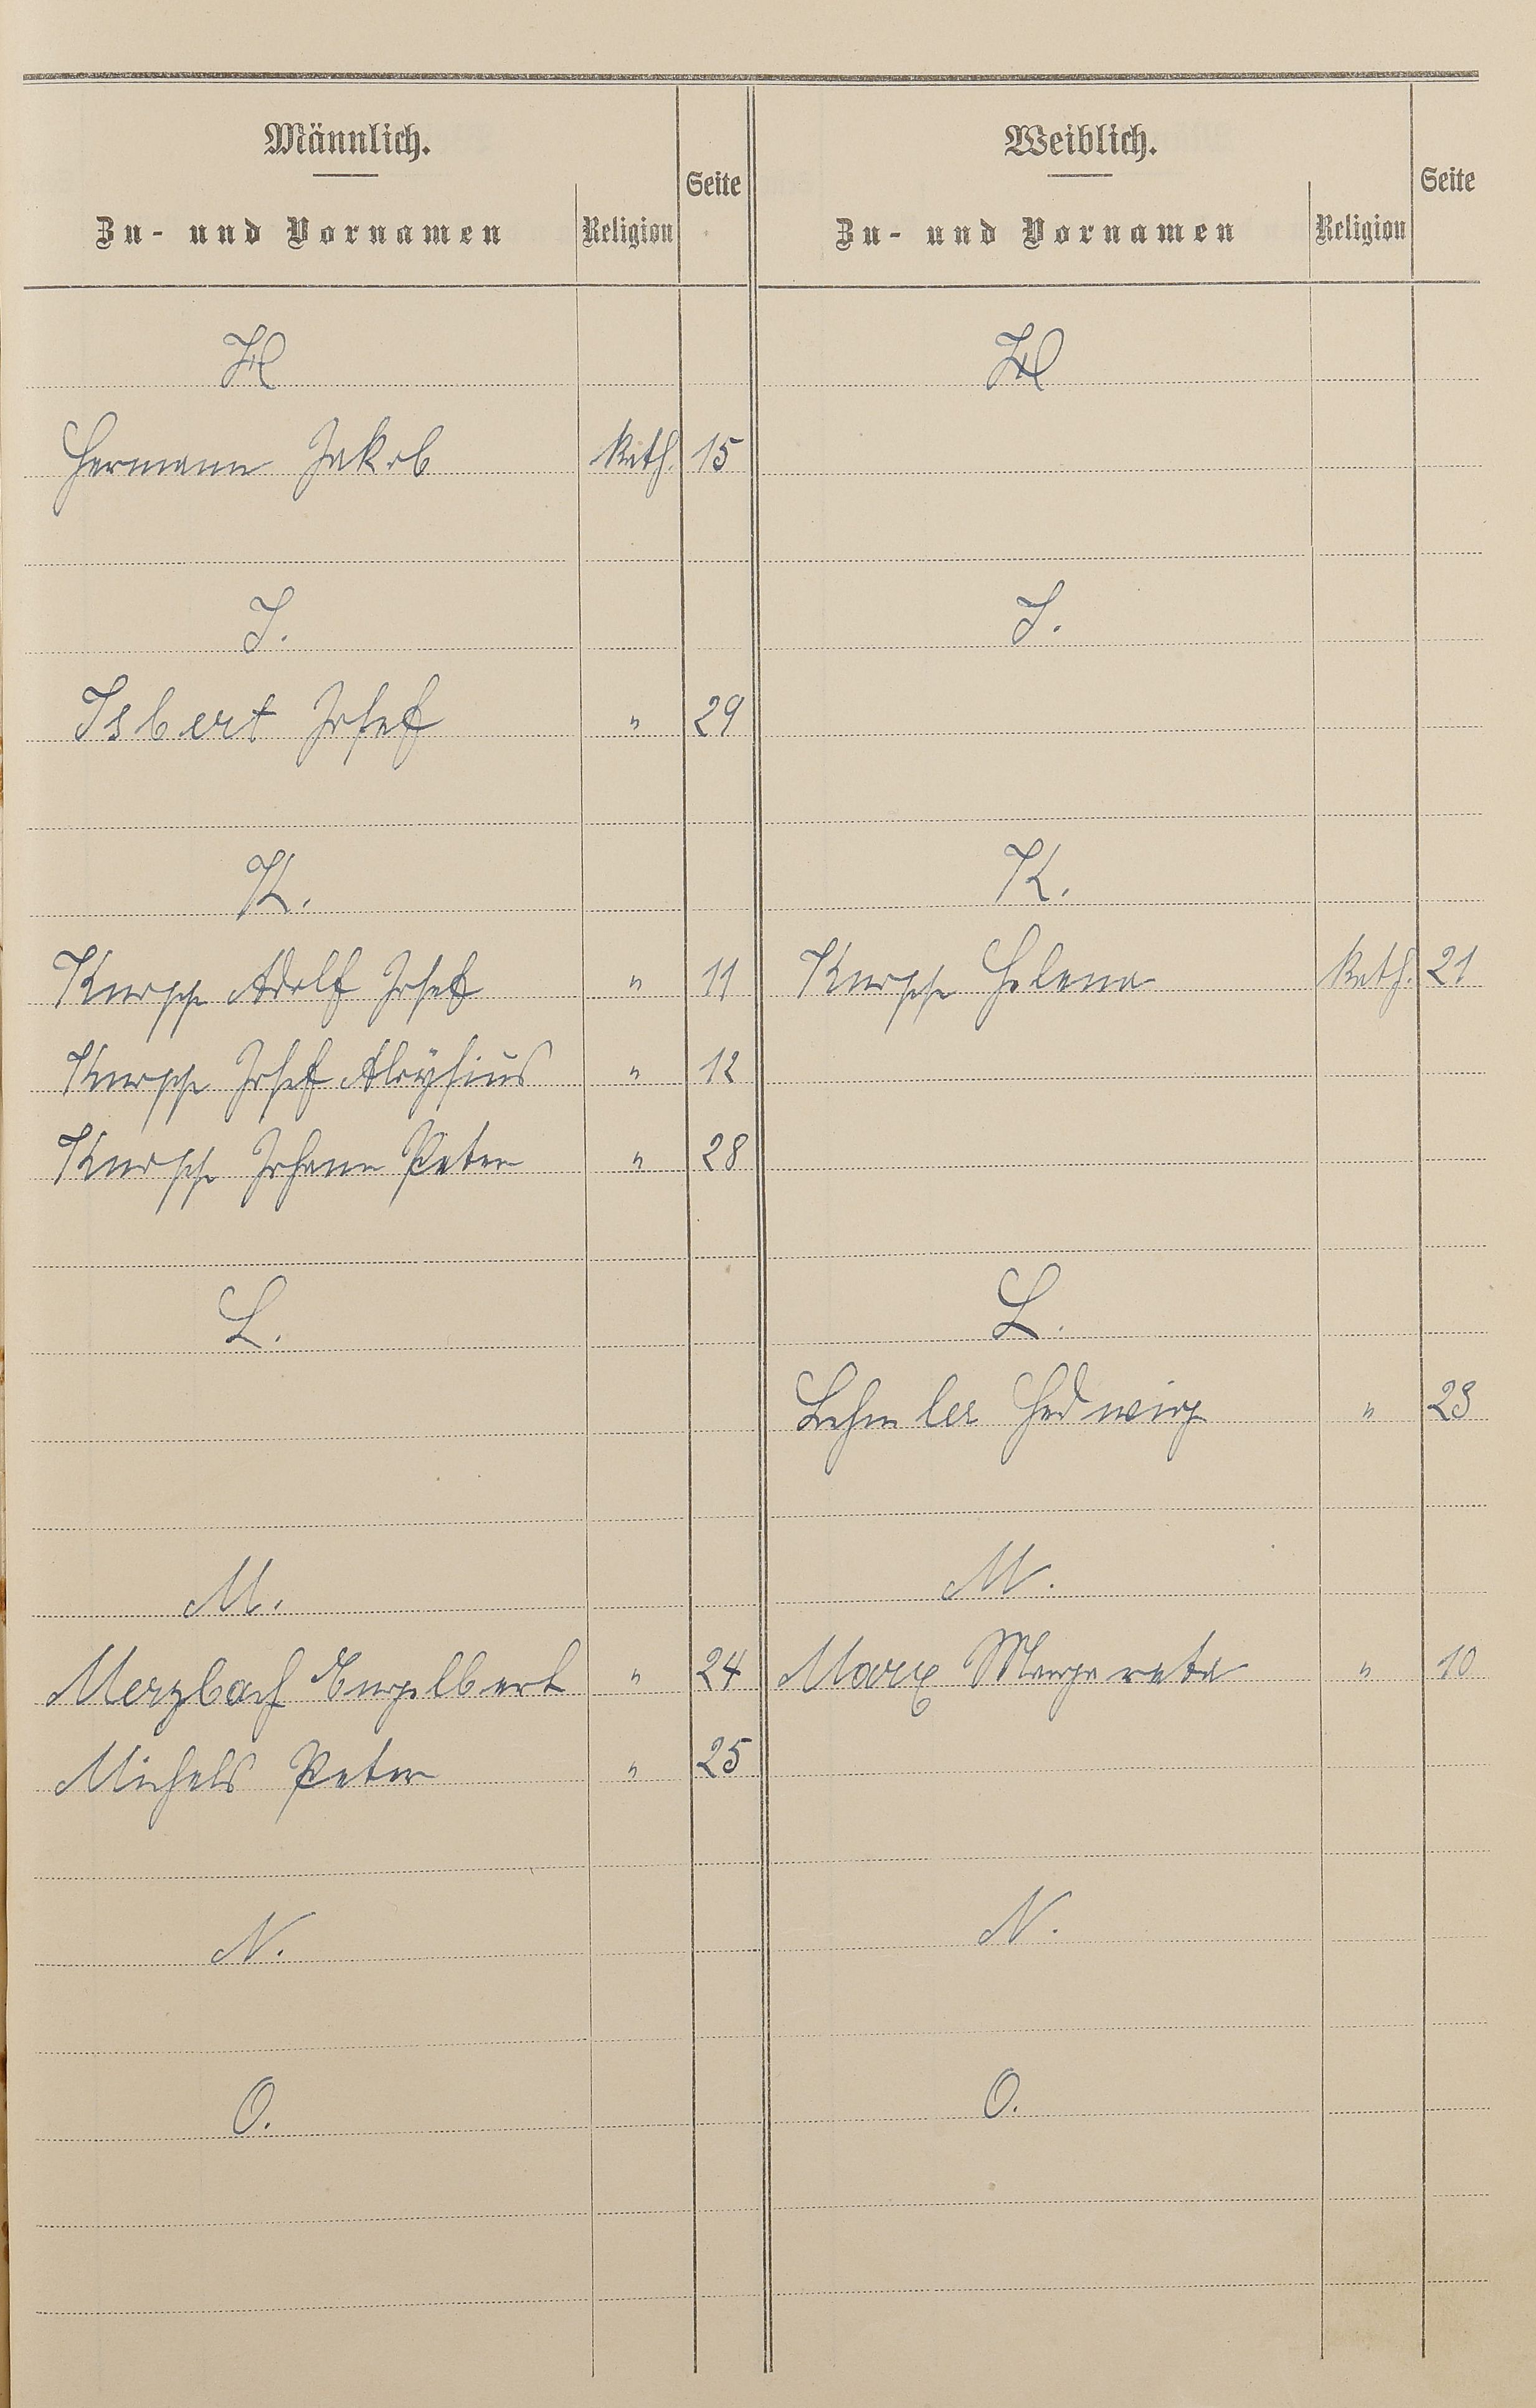 Männlich. Weiblich.
Seite Seite
Zu- und Vornamen Religion Zu- und Vornamen Religion
H H
Hermann Jakob Kath. 15
J. J.
Isbert Josef " 29
K. K.
Knopp Adolf Josef " 11 Knopp Helena Kath. 21
Knopp Josef Aloysius " 12
Knopp Johann Peter " 28
L. L.
Lehmler Hedwig " 23
M. M.
Merzbach Engelbert " 24 Marx Margareta " 10
Michels Peter " 25
N. N.
O. O.